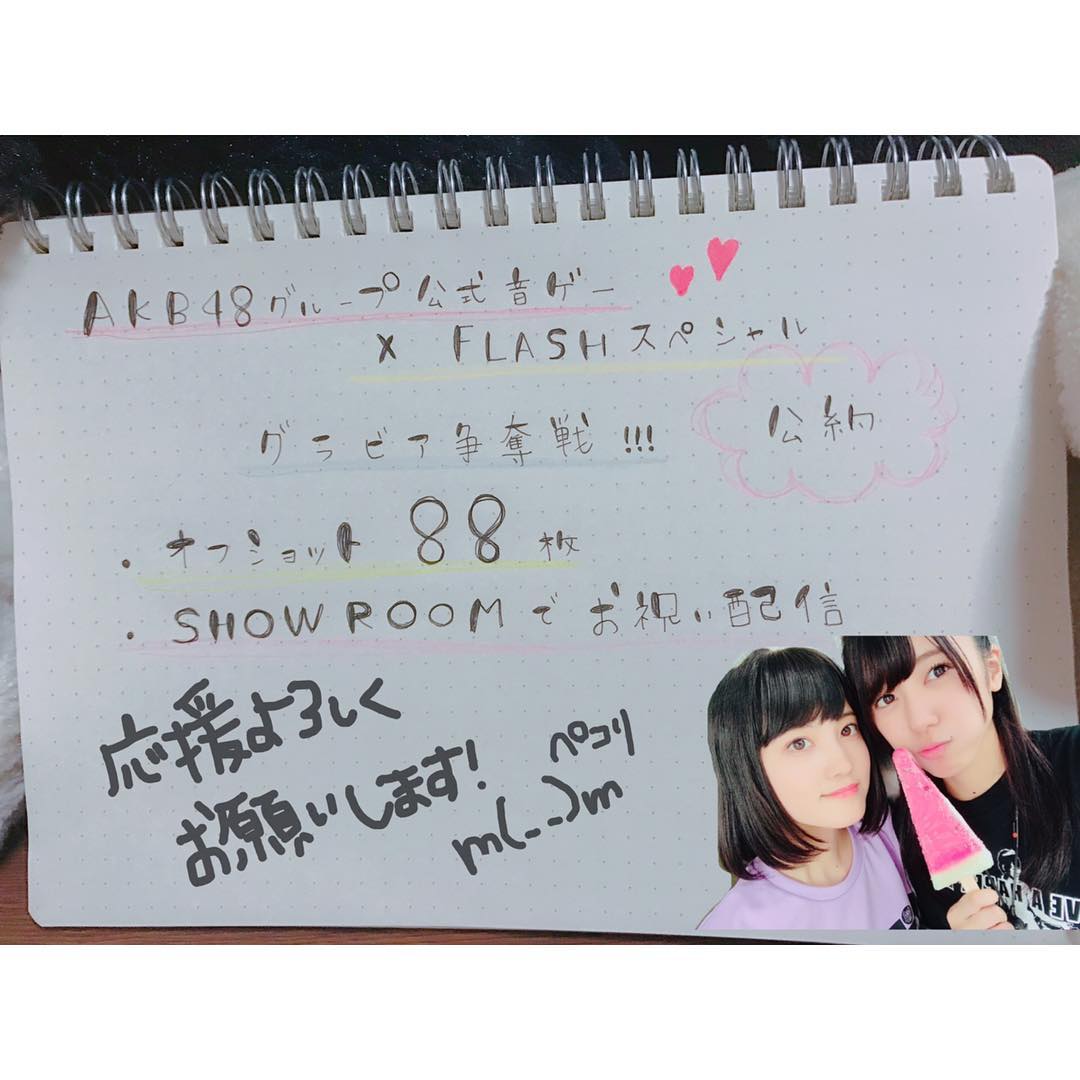 AKB48グループ公式音ゲー
× FLASHスペシャル
グラビア争奪戦!!!
公約
・オフショット 88枚
・SHOWROOMでお祝い配信
応援よろしく
お願いします!
ペコリ
m(_ _)m
VE A HAPP